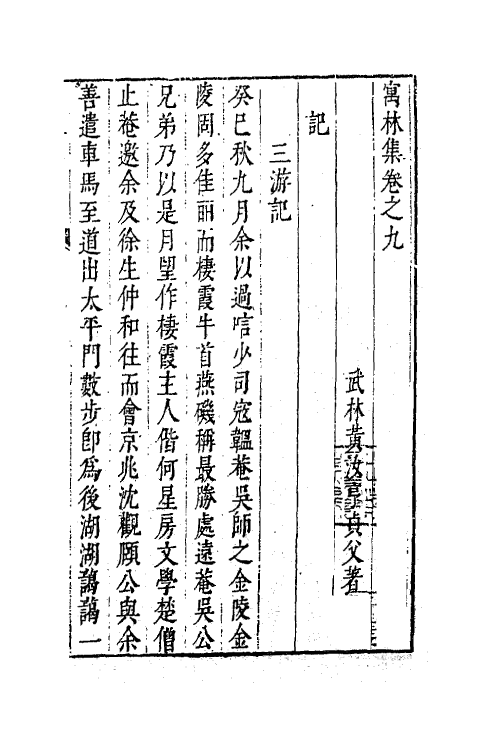 寓林集卷之九
武林黃汝亨貞父著
記
三游記
癸巳秋九月余以過唁少司寇韞菴吳師之金陵金
陵固多佳丽而棲霞牛首燕磯稱最勝處遠菴吳公
兄弟乃以是月望作棲霞主人偕何星房文學楚僧
止菴邀余及徐生仲和往而會京兆沈觀頤公與余
善遣車馬至道出太平門數步卽爲後湖湖藹藹一